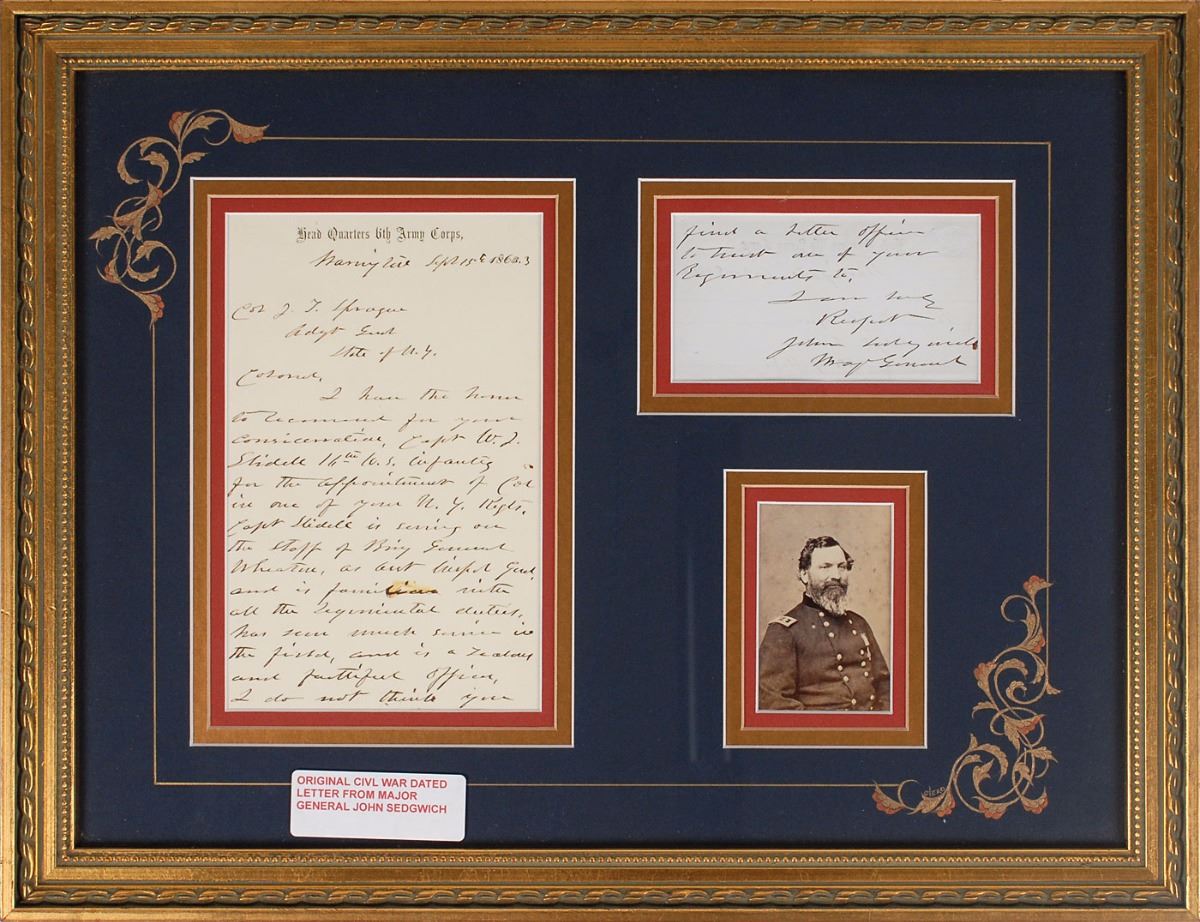 Head Quarters 6th Army Corps,
Sept 15th 1863
Col J. T. Sprague
Adgt Genl
State of N.Y.
Colonel,
I have the honor
to recommend for your
consideration, Capt W. J.
Slidell 16th U.S. Infantry
for the appointment of Col
in one of your N.Y. Regts.
Capt Slidell is serving on
the staff of Brig General
Wheaton, as Inspt Genl,
and is familiar with
all the regimental duties,
has seen much service in
the field, and is a zealous
and faithful officer,
I do not think you
find a better officer
to trust one of your
Regiments to.
I am
Respect
John Sedgwick
Maj General
ORIGINAL CIVL WAR DATED
LETTER FROM MAJOR
GENERAL JOHN SEDGWICH